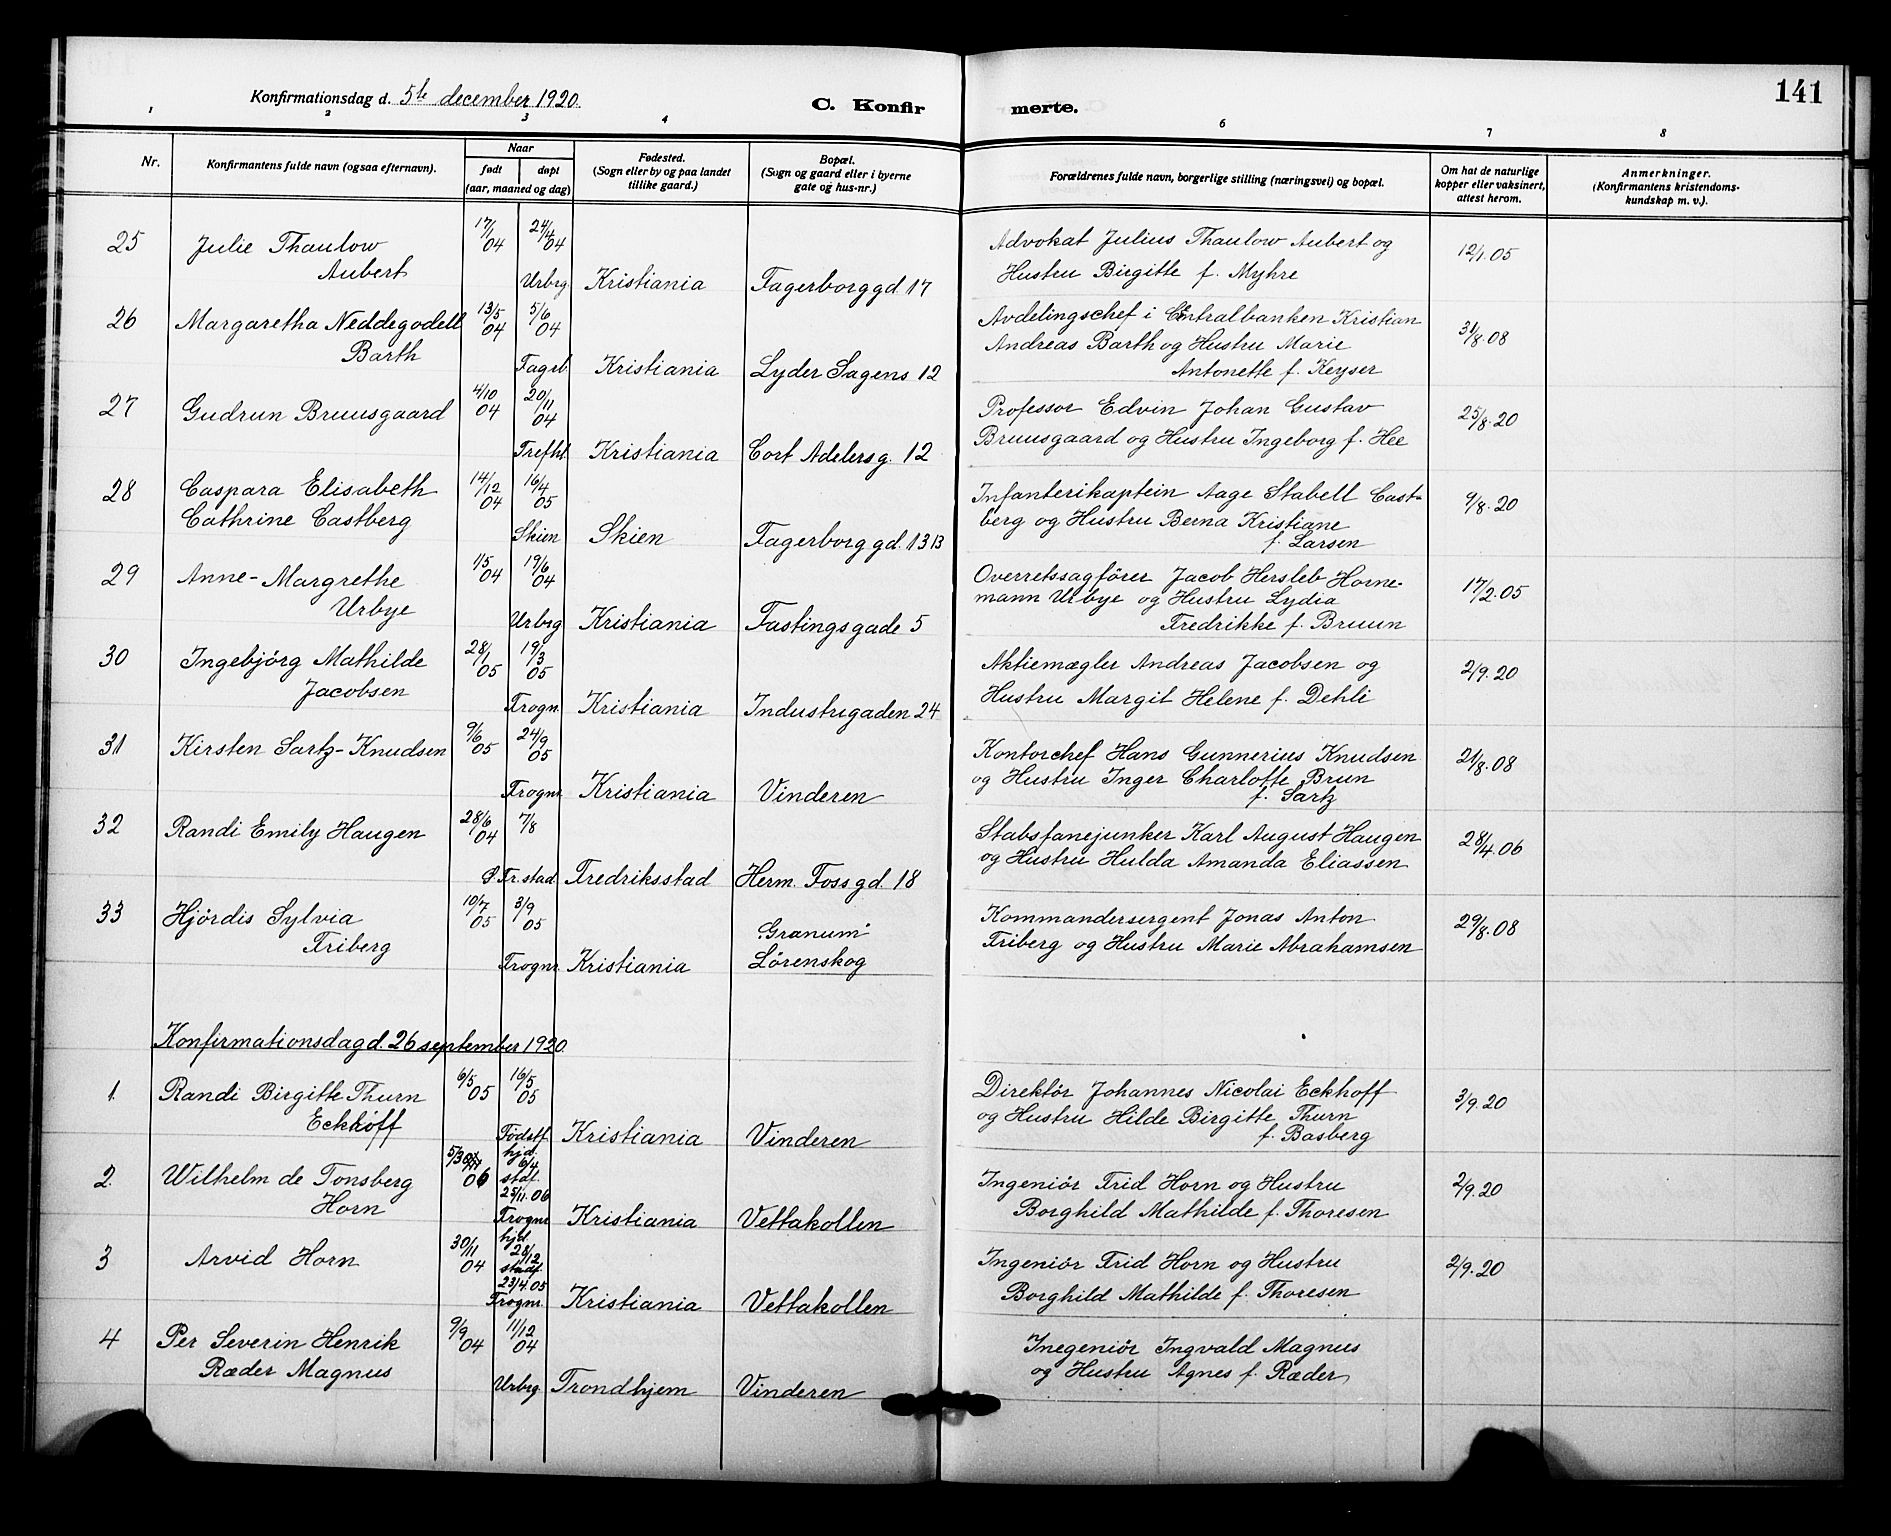 141
Konfirmationsdag d. 5te december 1920.
C. Konfir merte.
1 2 3 4 6 7 8
Nr.
Konfirmantens fulde navn (ogsaa efternavn).
Naar
født døpt
(aar, maaned og dag)
Fødested.
(Sogn eller by og paa landet
tillike gaard.)
Bopæl.
(Sogn og gaard eller i byerne
gate og hus-nr.)
Forældrenes fulde navn, borgerlige stilling (næringsvei) og bopæl.
Om hat de naturlige
kopper eller vaksinert,
attest herom.
Anmerkninger.
(Konfirmantens kristendoms-
kundskap m. v.).
25 Julie Thaulow 17/1 04 24/4 04 Advokat Julius Thaulow Aubert og 12/1.05
Aubert Urbrg. Kristiania Fagerborggd. 17 Hustru Birgitte f. Myhre
26 Margaretha Neddegodell 13/5 04 5/6 04 Avdelingschef i Centralbanken Kristian 31/8.08
Barth Andreas Barth og Hustru Marie
Fagrb. Kristiania Lyder Sagens 12 Antonette f. Keyser
27 Gudrun Bruusgaard 4/10 04 20/11 04 Professor Edvin Johan Gustav 25/8.20
Trefht. Kristiania Cort Adelersg. 12 Bruusgaard og Hustru Ingeborg f. Hee
28 Caspara Elisabeth 14/12 04 16/4 05 Infanterikaptein Aage Stabell Cast- 9/8.20
Cathrine Castberg berg og Hustru Berna Kristiane
Skien Skien Fagerborggd. 13B f. Larsen
29 Anne-Margrethe 1/5 04 19/6 04 Overretssagfører Jacob Hersleb Horne- 17/2.05
Urbye mann Urbye og Hustru Lydia
Urbrg Kristiania Fastingsgade 5 Fredrikke f. Bruun
30 Ingebjørg Mathilde 28/1 05 19/3 05 Aktiemægler Andreas Jacobsen og 2/9.20
Jacobsen Frogn. Kristiania Industrigaden 24 Hustru Margit Helene f. Dehli
31 Kirsten Sartz-Knudsen 9/6 05 24/9 05 Kontorchef Hans Gunnerius Knudsen 21/8.08
og Hustru Inger Charlotte Brun
Frognr. Kristiania Vinderen f. Sartz
32 Randi Emily Haugen 28/6 04 7/8 Stabsfanejunker Karl August Haugen 28/4.06
Ø Fr.stad Fredriksstad Herm. Fossgd. 18 og Hustru Hulda Amanda Eliassen
33 Hjørdis Sylvia 10/7 05 3/9 05 "Granum" Kommandersergent Jonas Anton 29/8.08
Friberg Frognr. Kristiania Lørenskog Friberg og Hustru Marie Abrahamsen
Konfirmationsdag d. 26 september 1920.
1. Randi Birgitte Thurn 6/5 05 16/5 05 Direktør Johannes Nicolai Eckhoff 3/9.20
Eckhoff og Hustru Hilde Birgitte Thurn
Fødstf. Kristiania Vinderen f. Basberg
2. Wilhelm de Tonsberg 5/3 06 hjd. 6/4 Ingeniør Frid Horn og Hustru 2/9.20
Horn stdf. 25/11.06 Borghild Mathilde f. Thoresen
Frognr. Kristiania Vettakollen
3 Arvid Horn 30/11 04 hjd. 28/12 Ingeniør Frid Horn og Hustru 2/9.20
stadf. 23/4.05 Borghild Mathilde f. Thoresen
Frognr. Kristiania Vettakollen
4 Per Severin Henrik 9/9 04 11/12 04 Inegeniør Ingvald Magnus
Ræder Magnus og Hustru Agnes f. Ræder
Urbrg. Trondhjem Vinderen